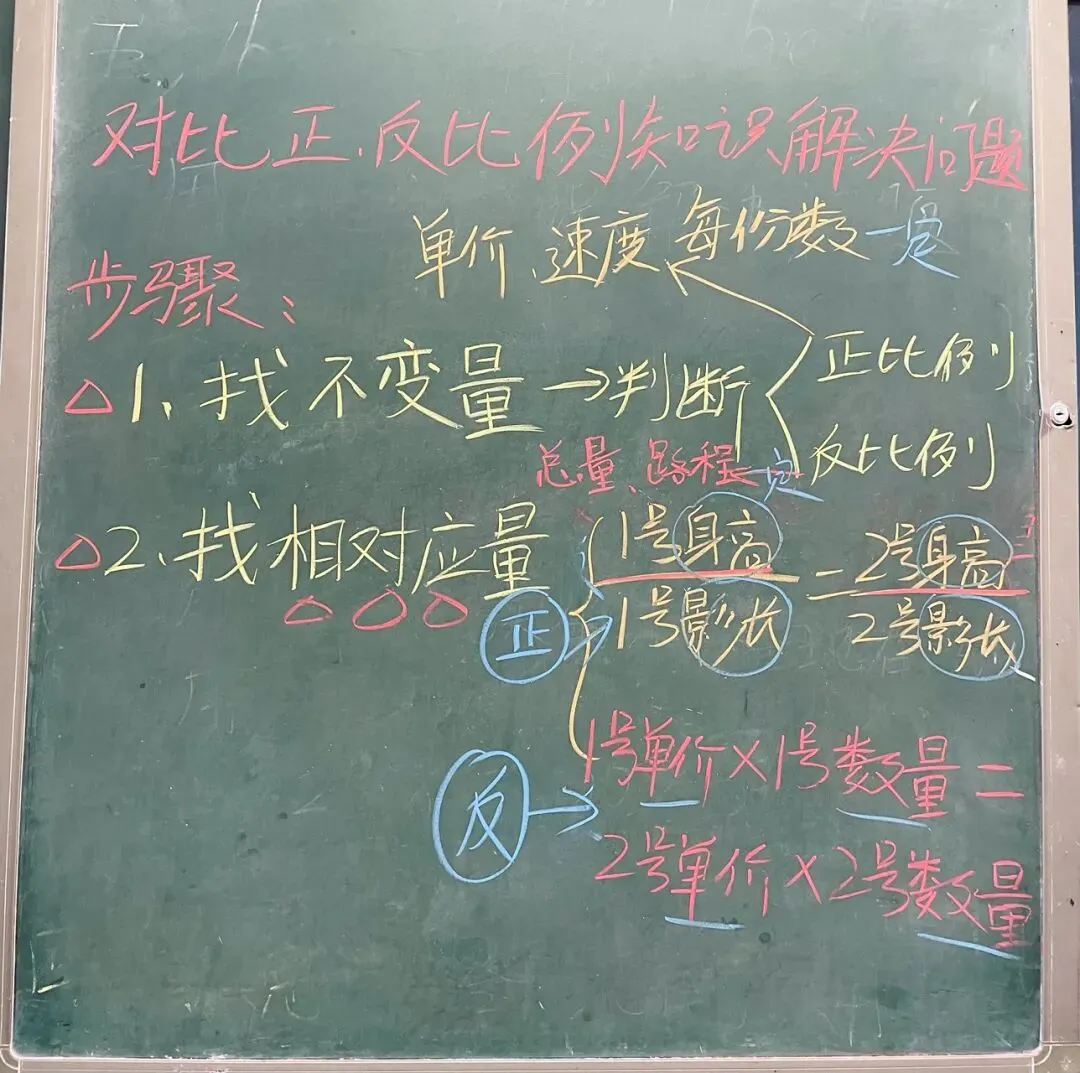 对比正、反比例知识解决问题
单价、速度 每份数一定
步骤：
△1、找不变量→判断 正比例
反比例
总量、路程一定
△2、找相对应量
正 1号身高 = 2号身高
1号影长 2号影长
反→ 1号单价×1号数量=
2号单价×2号数量